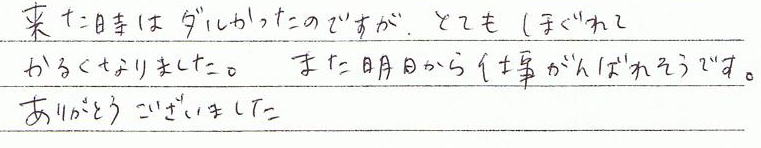 来た時はダルかったのですが、とてもほぐれて
かるくなりました。 また明日から仕事がんばれそうです。
ありがとうございました